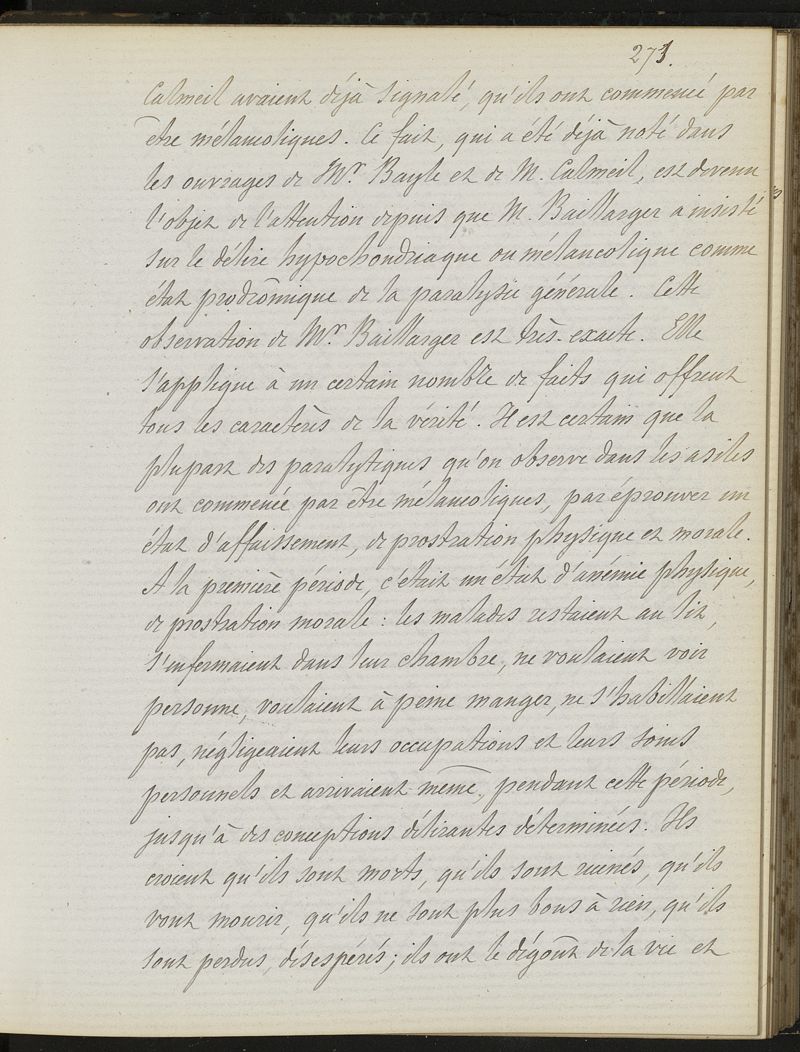 271.
Calmeil avaient déjà signalé, qu'ils ont commencé par
être mélancoliques. Ce fait, qui a été déjà noté dans
les ouvrages de Mr. Bayle et de M. Calmeil, est devenu
l'objet de l'attention depuis que M. Baillarger a insisté
sur le délire hypochondriaque ou mélancolique comme
état prodrômique de la paralysie générale. Cette
observation de Mr. Baillarger est très-exacte. Elle
s'applique à un certain nombre de faits qui offrent
tous les caractères de la vérité. Il est certain que la
plupart des paralytiques qu'on observe dans les asiles
ont commencé par être mélancoliques, par éprouver un
état d'affaissement, de prostration physique et morale.
A la première période, c'était un état d'anémie physique,
de prostration morale : les malades restaient au lit,
s'enfermaient dans leur chambre, ne voulaient voir
personne, voulaient à peine manger, ne s'habillaient
pas, négligeaient leurs occupations et leurs soins
personnels et arrivaient même, pendant cette période,
jusqu'à des conceptions délirantes déterminées. Ils
croient qu'ils sont morts, qu'ils sont ruinés, qu'ils
vont mourir, qu'ils ne sont plus bons à rien, qu'ils
sont perdus, désespérés ; ils ont le dégoût de la vie et